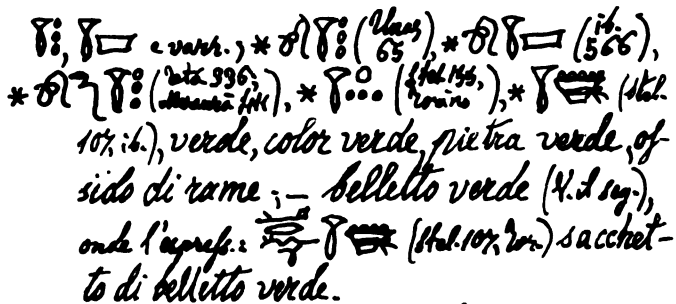 e varr., * (Unas 65), * (ib. 566),
* (Teta 336; ), * (Stel. 155, Torino), * (Stel.
107, ib.), verde, color verde, pietra verde, os-
sido di rame; — belletto verde (V. il seg.),
onde l'espress.: (Stel. 107, Tor.) sacchet-
to di belletto verde.